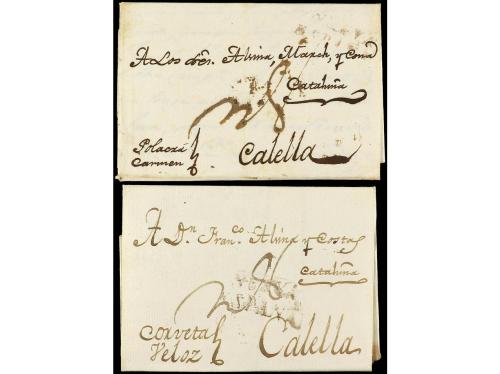 A Los Sres. Alsina, March, y Comª
Cataluña
Polacra
Carmen
Calella
A Dn. Franco. Alsina y Costa
Cataluña
Corveta
Veloz
Calella